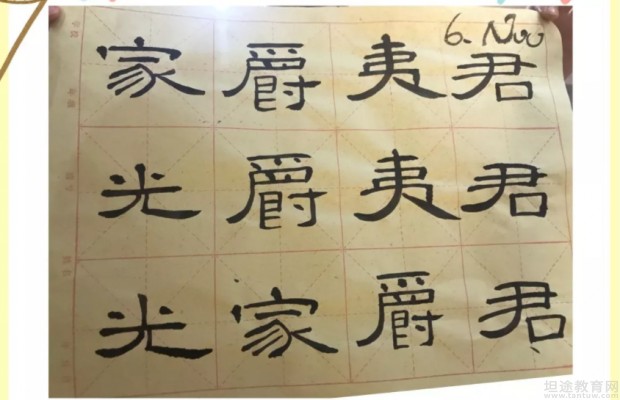 6. Nuo
君君君
夷夷爵
爵爵家
家光光
坦途教育网
www.tantuw.com